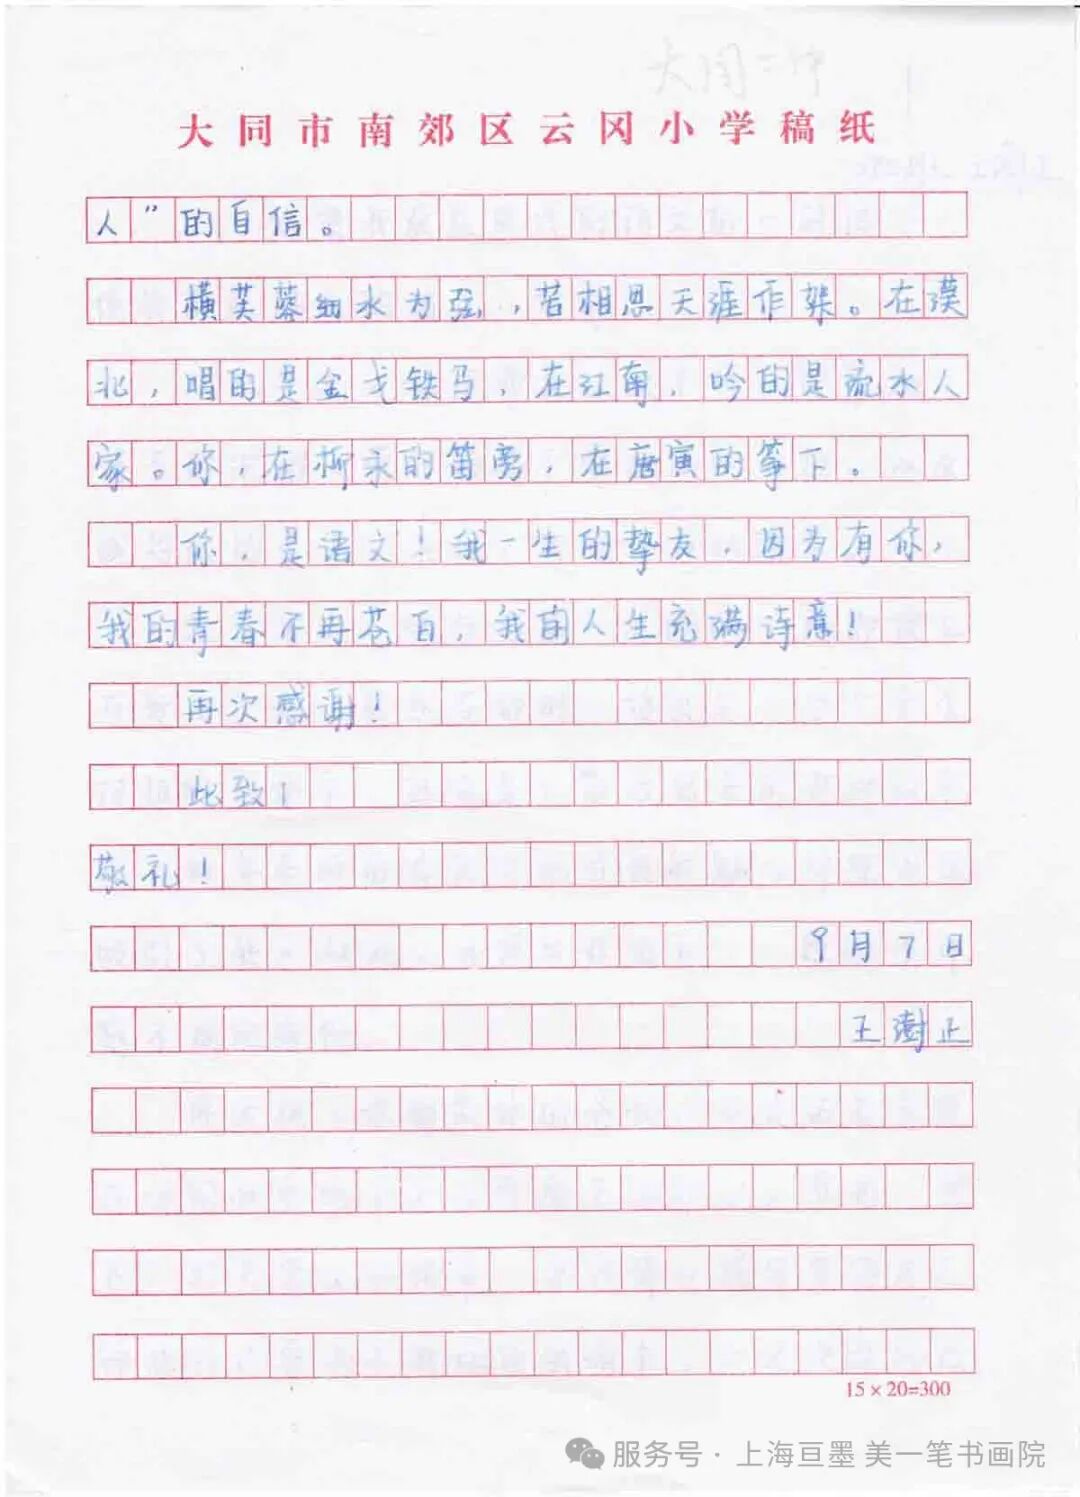 大同市南郊区云冈小学稿纸
人”的自信。
横芙蓉细水为弦,,若相思天涯作架。在漠
北,唱的是金戈铁马,在江南,吟的是流水人
家。你,在柳永的笛旁,在唐寅的筝下。
你,是语文!我一生的挚友,因为有你,
我的青春不再苍白,我的人生充满诗意!
再次感谢!
此致!
敬礼!
9月7日
王澍正
15×20=300
服务号·上海亘墨 美一笔书画院